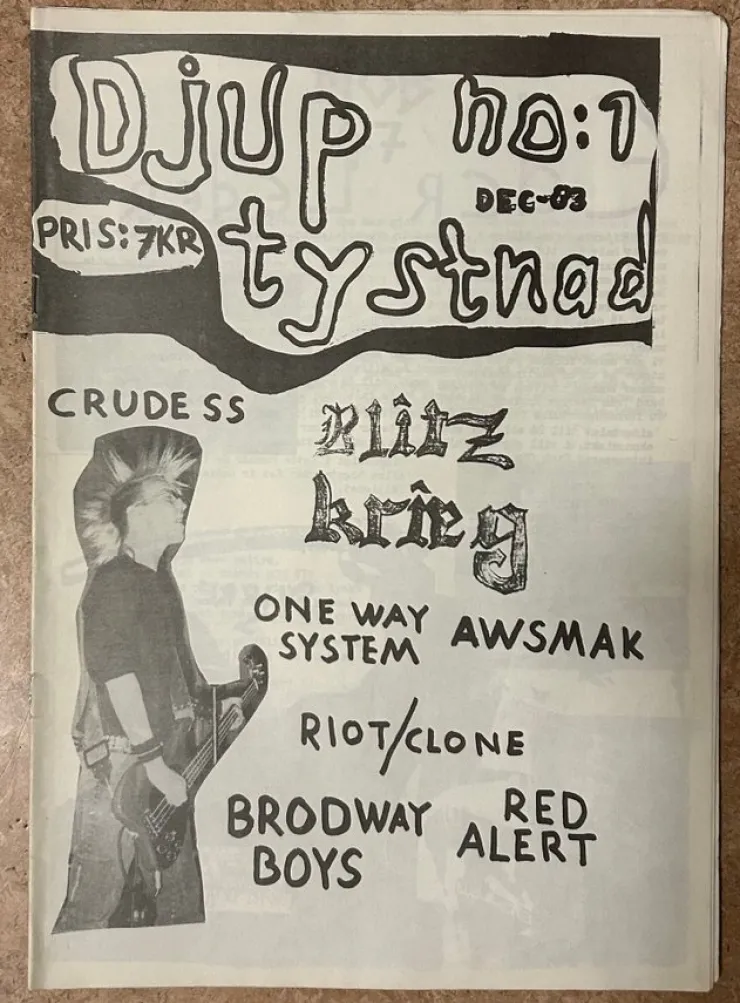 Djup no:1
DEC-83
PRIS: 7KR
tystnad
CRUDE SS
Blitz
krieg
ONE WAY
SYSTEM
AWSMAK
RIOT/CLONE
BRODWAY
BOYS
RED
ALERT